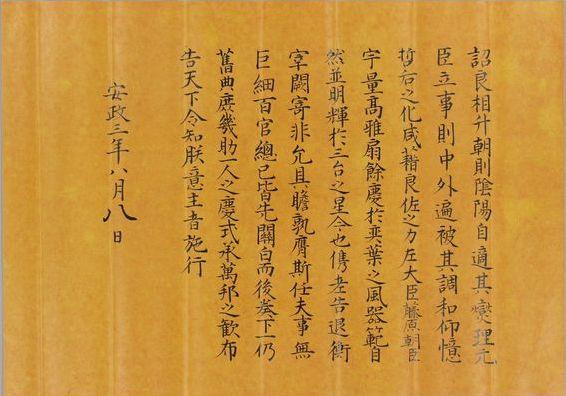 詔良相升朝則陰陽自適其爕理元
臣立事則中外遍被其調和仰憶
哲后之化咸藉良佐之力左大臣藤原朝臣
宇量高雅扇餘慶於奕葉之風器範自
然並明輝於三台之星今也儁老告退衡
宰闕寄非允具瞻孰膺斯任夫事無
巨細百官總已皆先關白而後奏下一仍
舊典庶幾助一人之慶式承萬邦之歓布
告天下令知朕意主者施行
安政三年八月八日